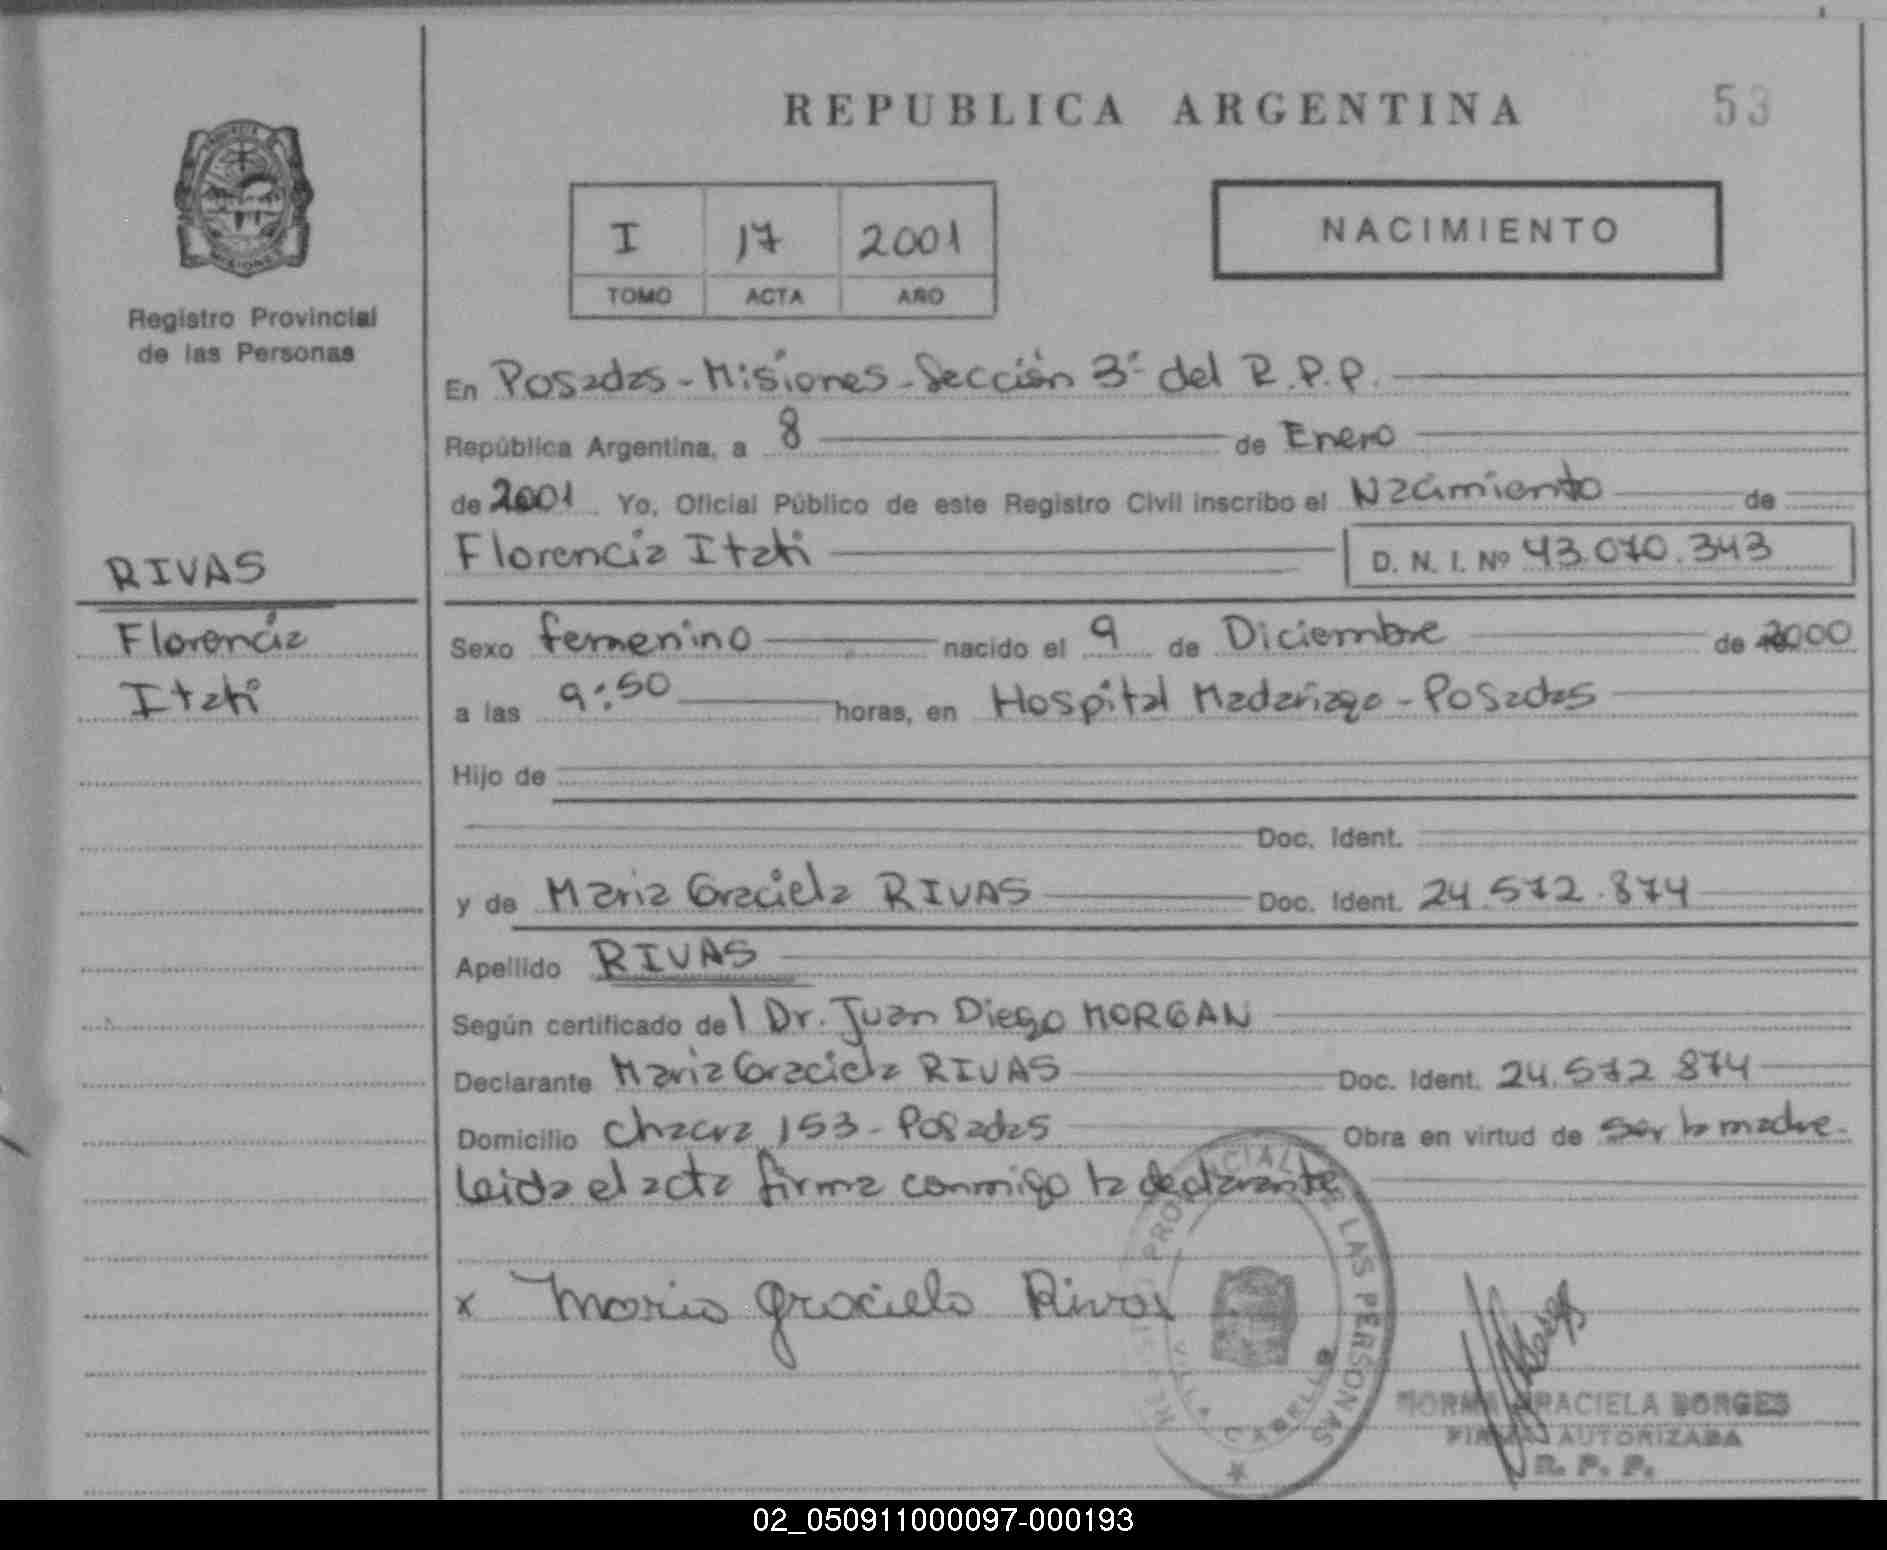 REPUBLICA ARGENTINA
53
I 17 2001
TOMO ACTA AÑO
NACIMIENTO
Registro Provincial
de las Personas
En Posadas - Misiones - Sección 3ª del R.P.P.
República Argentina, a 8 de Enero
de 2001 Yo, Oficial Público de este Registro Civil inscribo el Nacimiento de
Florencia Itati D. N. I. Nº 43.070.343
RIVAS
Florencia
Itati
Sexo femenino nacido el 9 de Diciembre de 2000
a las 9:50 horas, en Hospital Madariaga - Posadas
Hijo de
Doc. Ident.
y de Maria Graciela RIVAS Doc. Ident. 24.572.874
Apellido RIVAS
Según certificado del Dr. Juan Diego MORGAN
Declarante Maria Graciela RIVAS Doc. Ident. 24.572.874
Domicilio Chacra 153 - Posadas Obra en virtud de ser la madre.
Leida el acta firma conmigo la declarante
x Maria Graciela Rivas
PROVINCIAL DE LAS PERSONAS
VILLA CABELLO
NORMA GRACIELA BORGES
FIRMA AUTORIZADA
R. P. P.
02_050911000097-000193